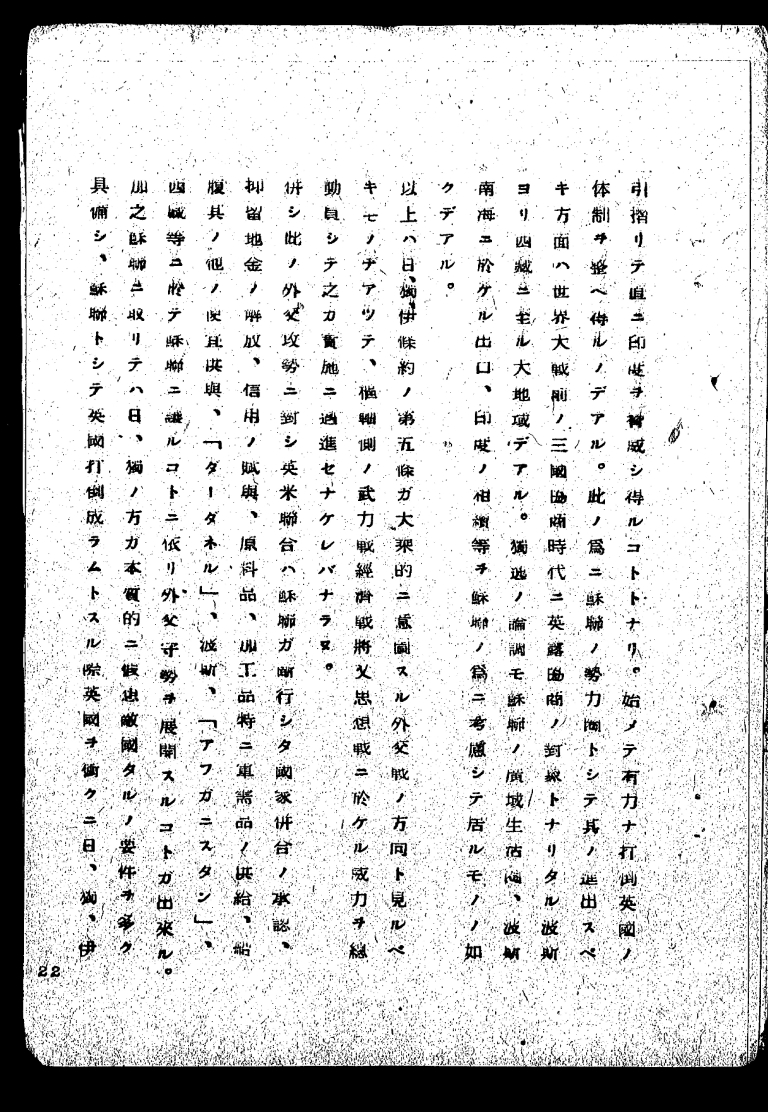 引摺リテ直ニ印度ヲ脅威シ得ルコトトナリ。始メテ有力ナ打倒英國ノ
体制ヲ整ヘ得ルノデアル。此ノ爲ニ蘇聯ノ勢力圏トシテ其ノ進出スベ
キ方面ハ世界大戰前ノ三國協商時代ニ英露協商ノ對線トナリタル波斯
ヨリ西藏ニ至ル大地域デアル。獨逸ノ論調モ蘇聯ノ廣域生活圏、波斯
南海ニ於ケル出口、印度ノ相續等ヲ蘇聯ノ爲ニ考慮シテ居ルモノノ如
クデアル。
以上ハ日、獨伊條約ノ第五條ガ大乘的ニ意圖スル外交戰ノ方向ト見ルベ
キモノデアツテ、樞軸側ノ武力戰經濟戰將又思想戰ニ於ケル威力ヲ總
動員シテ之ガ實施ニ邁進セナケレバナラヌ。
併シ此ノ外交攻勢ニ對シ英米聯合ハ蘇聯ガ斷行シタ國家併合ノ承認、
抑留地金ノ解放、信用ノ賦與、原料品、加工品特ニ軍需品ノ供給、船
腹其ノ他ノ便宜供與、「ダーダネル」、波斯、「アフガニスタン」、
西藏等ニ於テ蘇聯ニ讓ルコトニ依リ外交守勢ヲ展開スルコトガ出來ル。
加之蘇聯ニ取リテハ日、獨ノ方ガ本質的ニ假想敵國タルノ要件ヲ多ク
具備シ、蘇聯トシテ英國打倒成ラムトスル際英國ヲ衝クニ日、獨、伊
22